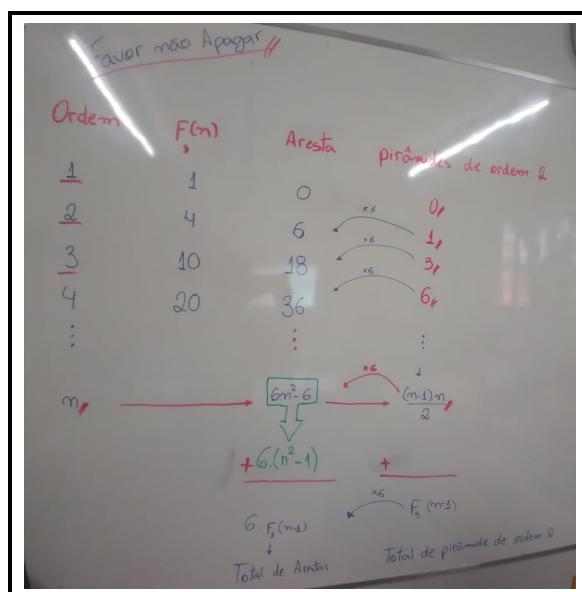 Favor não Apagar
Ordem F₃(n) Aresta pirâmides de ordem 2
1 1 0 0
2 4 6 x6 1
3 10 18 x6 3
4 20 36 x6 6
⋮ ⋮ ⋮
n 6n²-6 x6 (n-1)n/2
+ 6.(n²-1) +
6. F₃(n-1) x6 F₃(n-1)
Total de Arestas Total de pirâmide de ordem 2